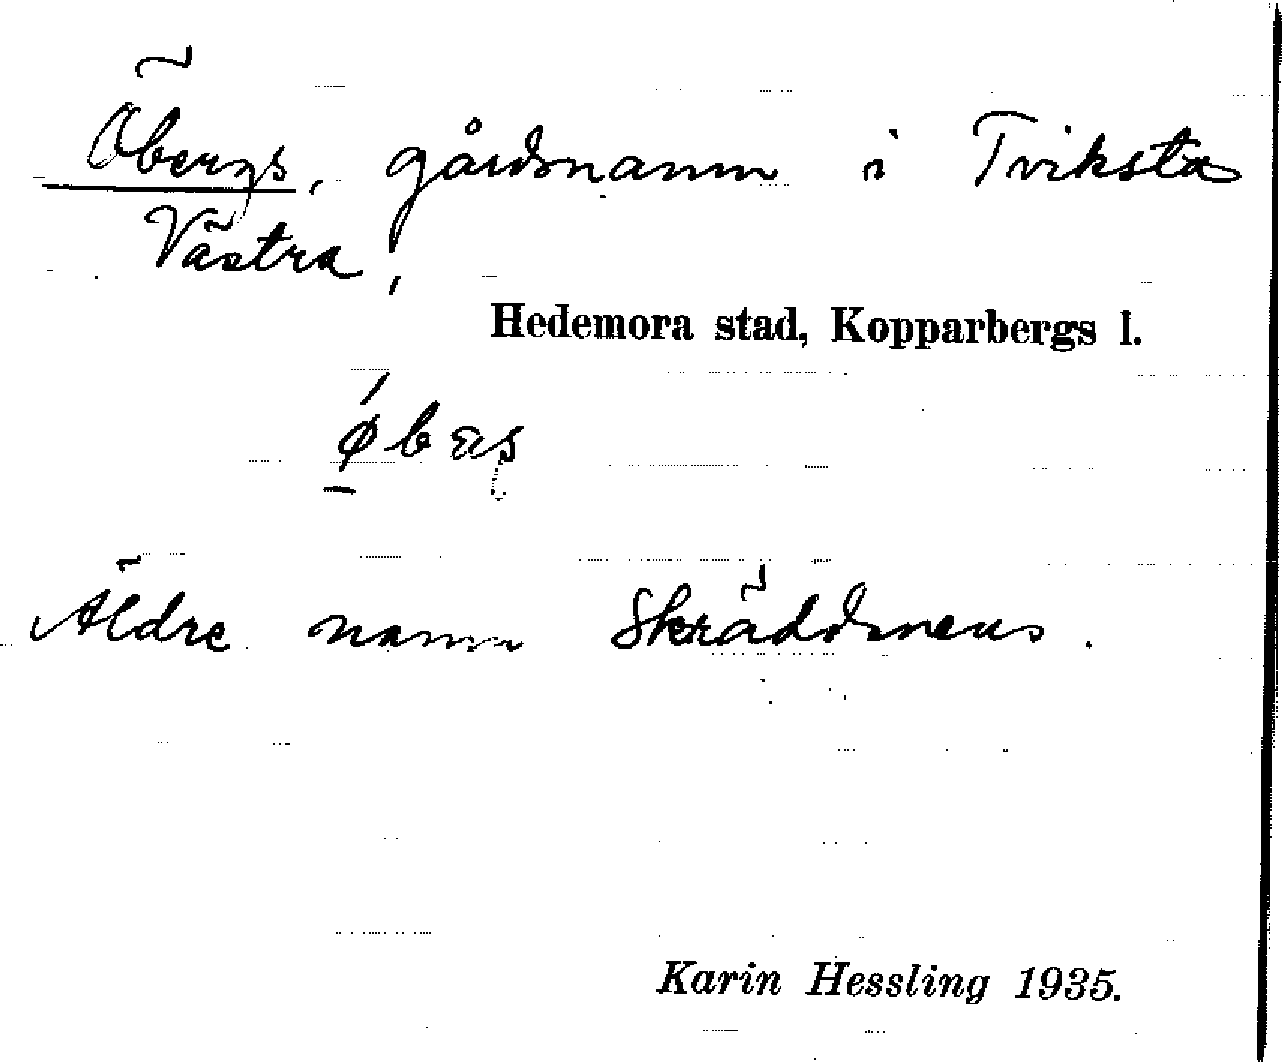 Öbergs, gårdsnamn i Tviksta
Västra,
Hedemora stad, Kopparbergs l.
Äldre namn Skräddmens.
Karin Hessling 1935.